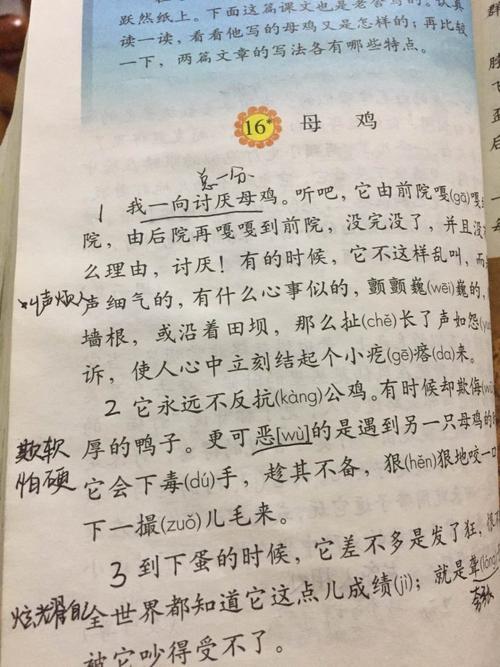 跃然纸上。下面这篇课文也是老舍写的。认真
读一读，看看他写的母鸡又是怎样的；再比较
一下，两篇文章的写法各有哪些特点。
16* 母鸡
总—分
1 我一向讨厌母鸡。听吧，它由前院嘎(gā)嘎
院，由后院再嘎嘎到前院，没完没了，并且没
么理由，讨厌！有的时候，它不这样乱叫，而
叫声烦人
声细气的，有什么心事似的，颤颤巍(wēi)巍的，
墙根，或沿着田坝，那么扯(chě)长了声如怨
诉，使人心中立刻结起个小疙(gē)瘩(da)来。
2 它永远不反抗(kàng)公鸡。有时候却欺侮(wǔ)
欺软
怕硬
厚的鸭子。更可恶[wù]的是遇到另一只母鸡的
它会下毒(dú)手，趁其不备，狠(hěn)狠地咬一口
下一撮(zuǒ)儿毛来。
3 到下蛋的时候，它差不多是发了狂，恨
炫耀自己
全世界都知道它这点儿成绩(jì)；就是聋(lóng)
被它吵得受不了。